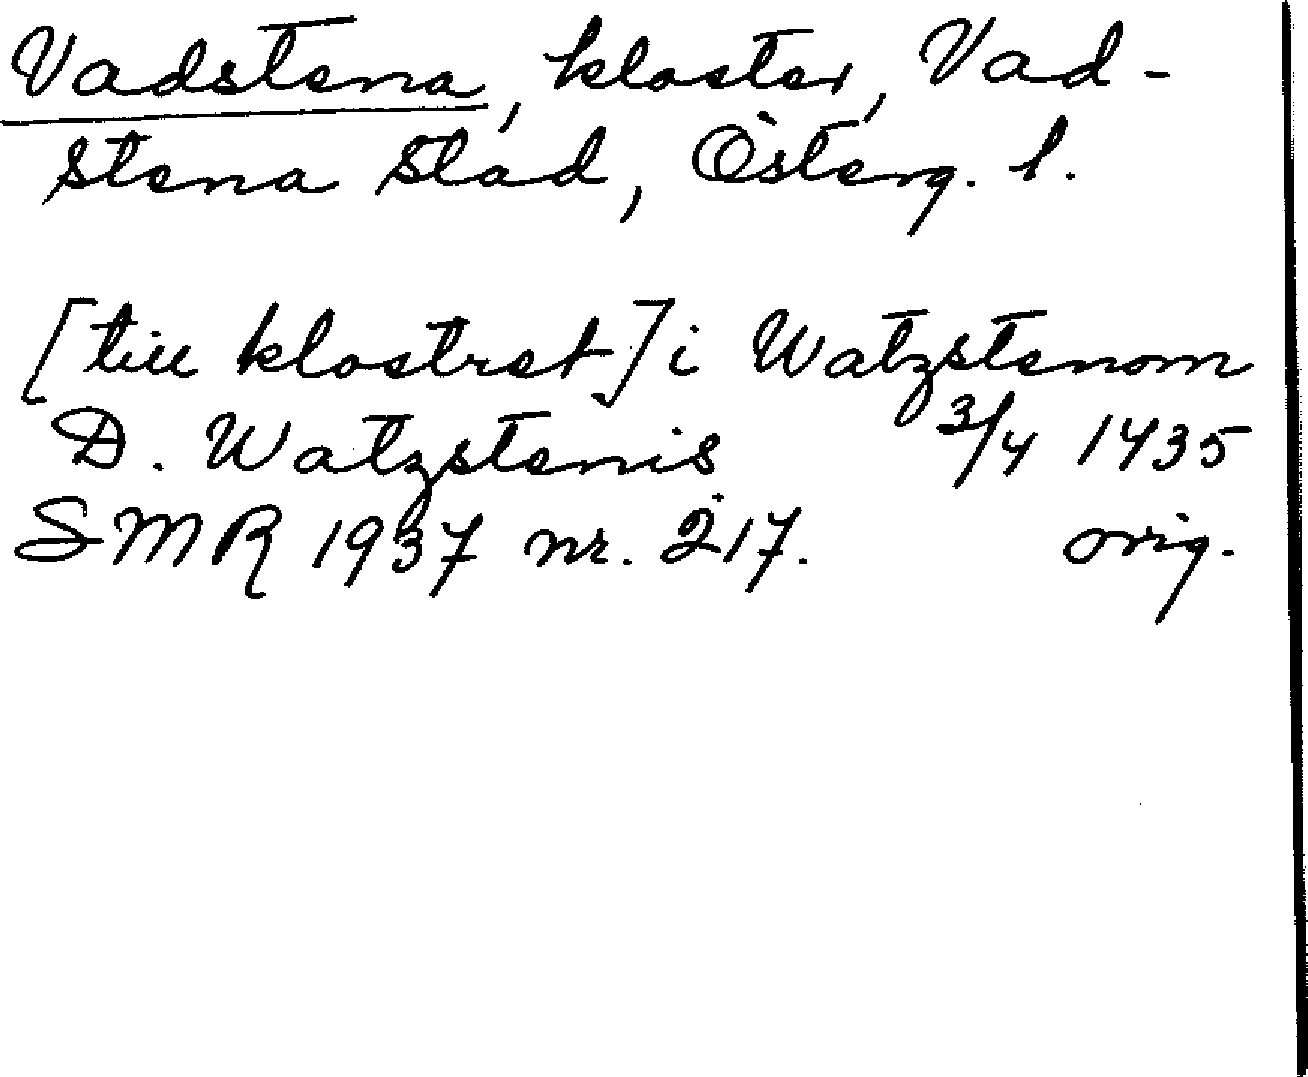 Vadstena, kloster, Vad-
stena stad, Österg. l.
[till klostret] i Watzstenom
D. Watzstenis 3/4 1435
SMR 1937 nr. 217. orig.